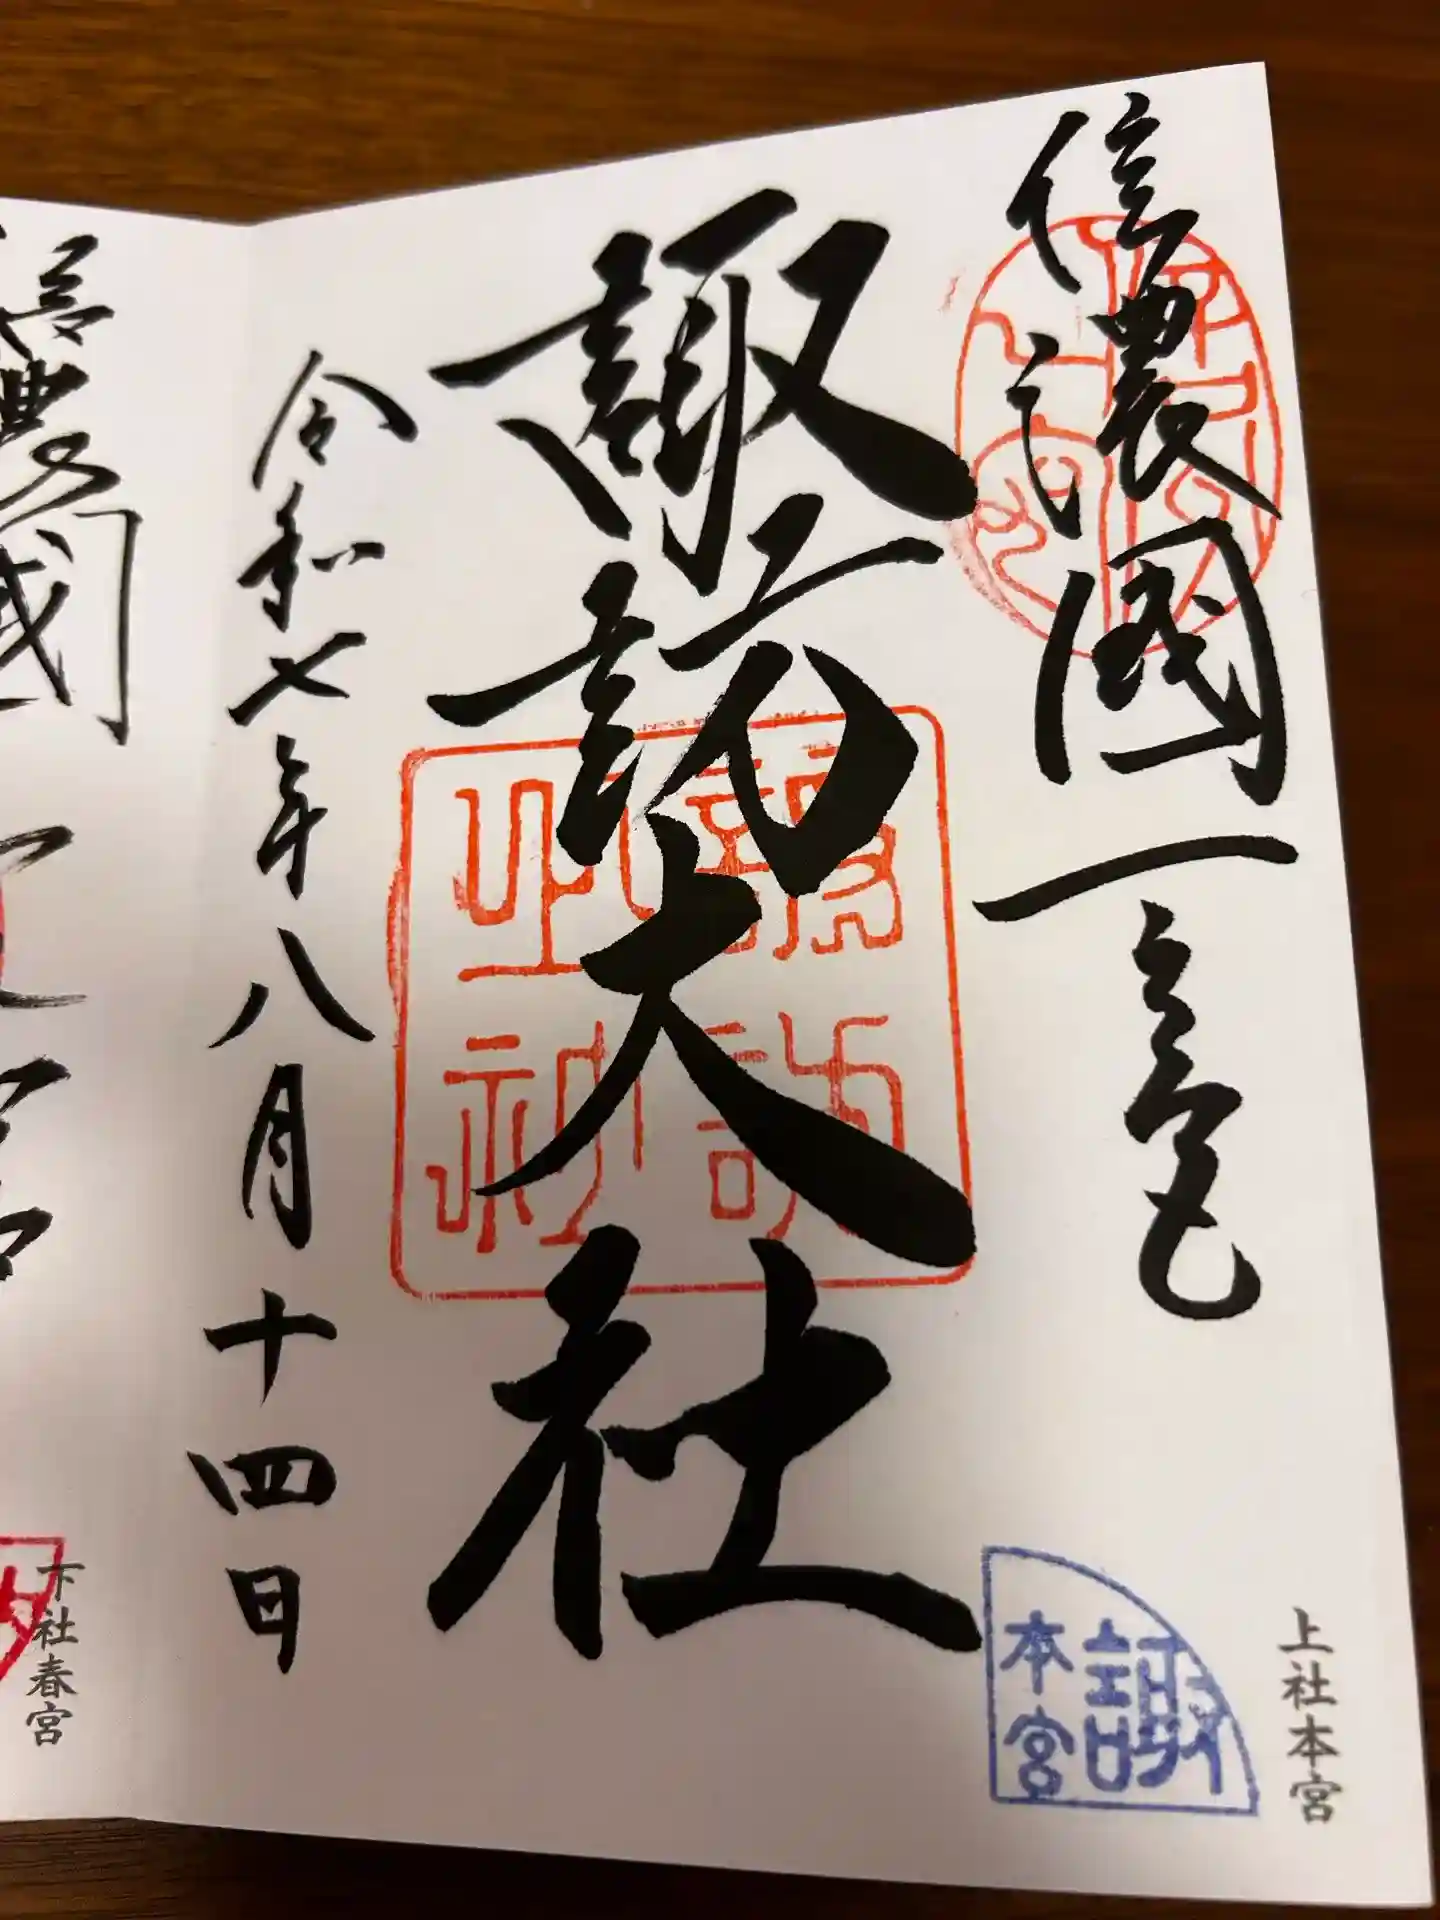 信濃國一之宮
諏訪大社
令和七年八月十四日
上社本宮
諏
本宮
諏訪
神社
濃國
下社春宮